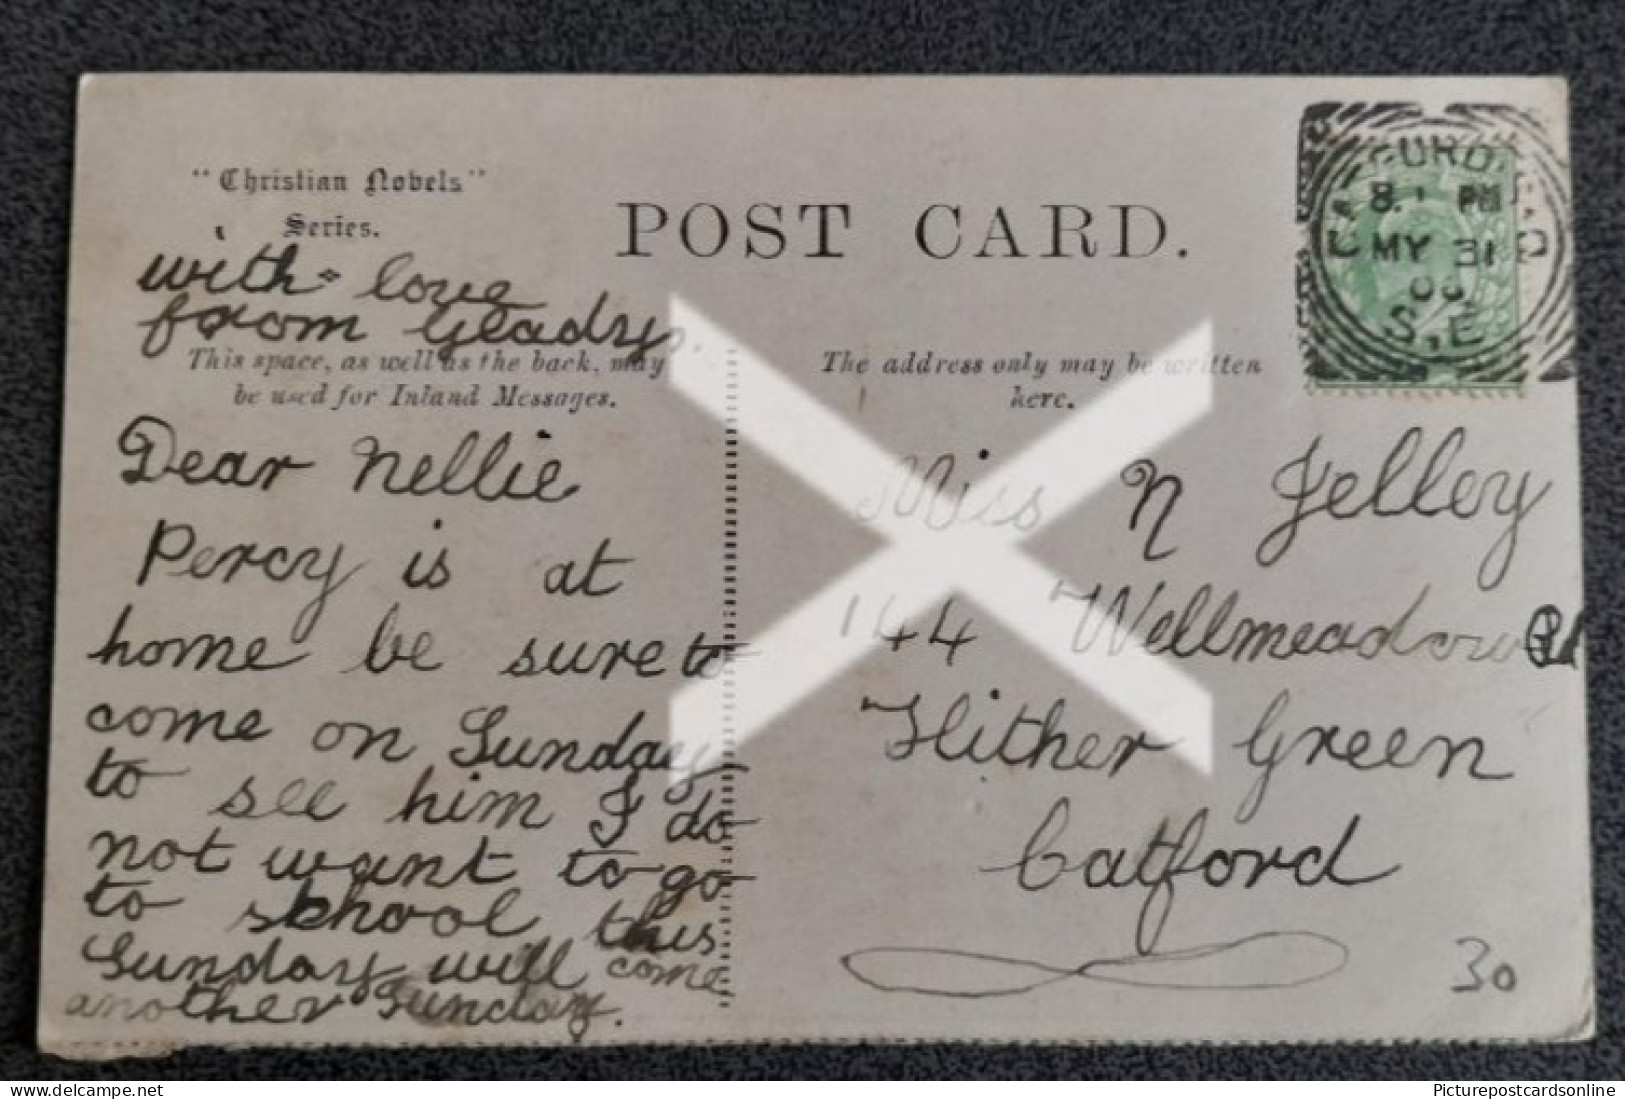 "Christian Novels"
Series.
POST CARD.
with love
from Gladys.
This space, as well as the back, may
be used for Inland Messages.
The address only may be written
here.
Dear Nellie
Percy is at
home be sure to
come on Sunday
to see him I do
not want to go
to school this
Sunday will come
another Sunday.
Miss N Jelley
144 Wellmeadow Rd
Hither Green
Catford
30
8. PM
MY 31
S.E
delcampe.net
Picturepostcardsonline